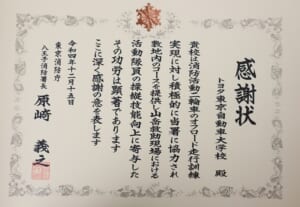 感謝状
トヨタ東京自動車大学校 殿
貴校は消防活動二輪車のオフロード走行訓練
実現に対し積極的に当署に協力され
敷地内のコースを提供し山岳救助現場における
活動隊員の操縦技能向上に寄与した
その功労は顕著であります
ここに深く感謝の意を表します
令和四年十二月十五日
東京消防庁
八王子消防署長 原崎 義之